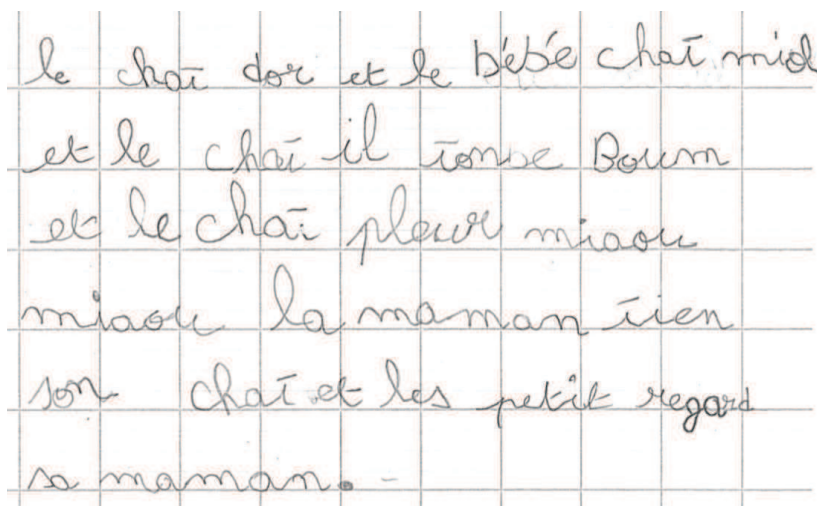 le chat dor et le bébé chat mid
et le chat il tombe Boum
et le chat pleur miaou
miaou la maman tien
son chat et les petit regard
sa maman.